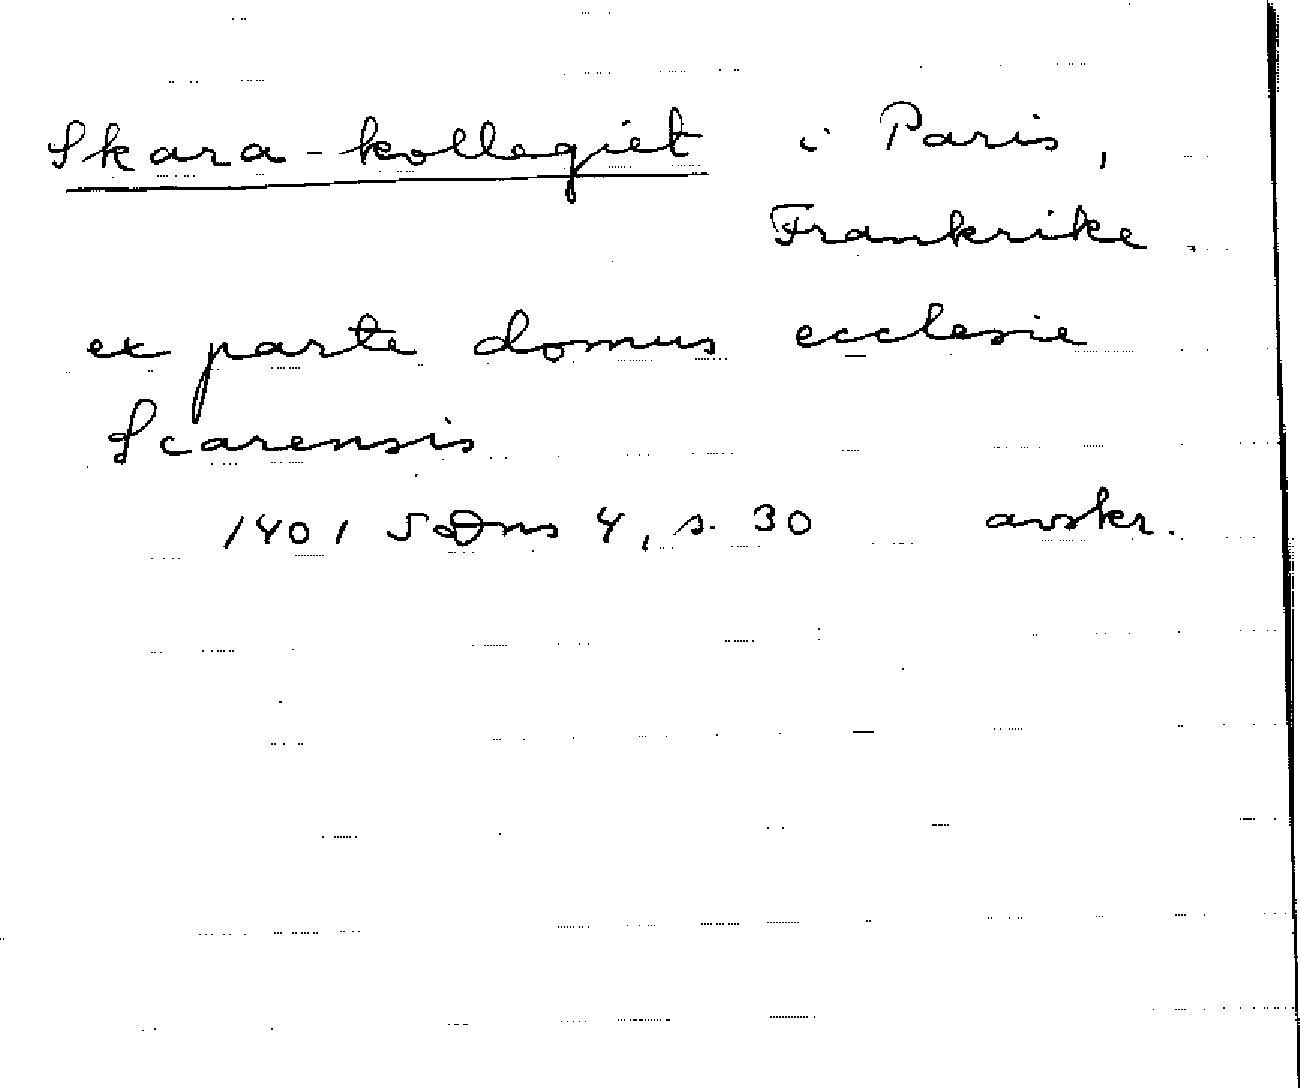 Skara-kollegiet i Paris,
Frankrike.
ex parte domus ecclesie
Scarensis
1401 SDns 4, s. 30 avskr.